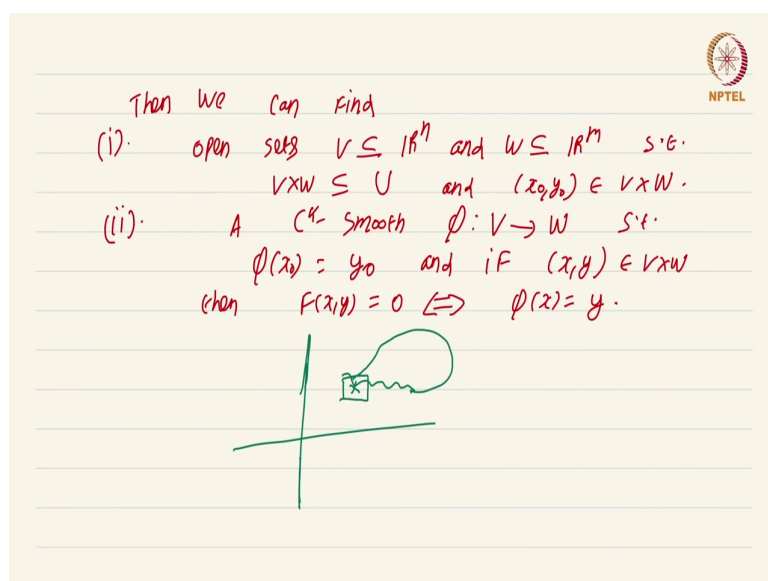 NPTEL
Then we can find
(i). open sets V ⊆ ℝⁿ and W ⊆ ℝᵐ s.t.
V×W ⊆ U and (x₀,y₀) ∈ V×W.
(ii). A Cᵏ- smooth Ø: V → W s.t.
Ø(x₀) = y₀ and if (x,y) ∈ V×W
then F(x,y) = 0 ⇔ Ø(x) = y.